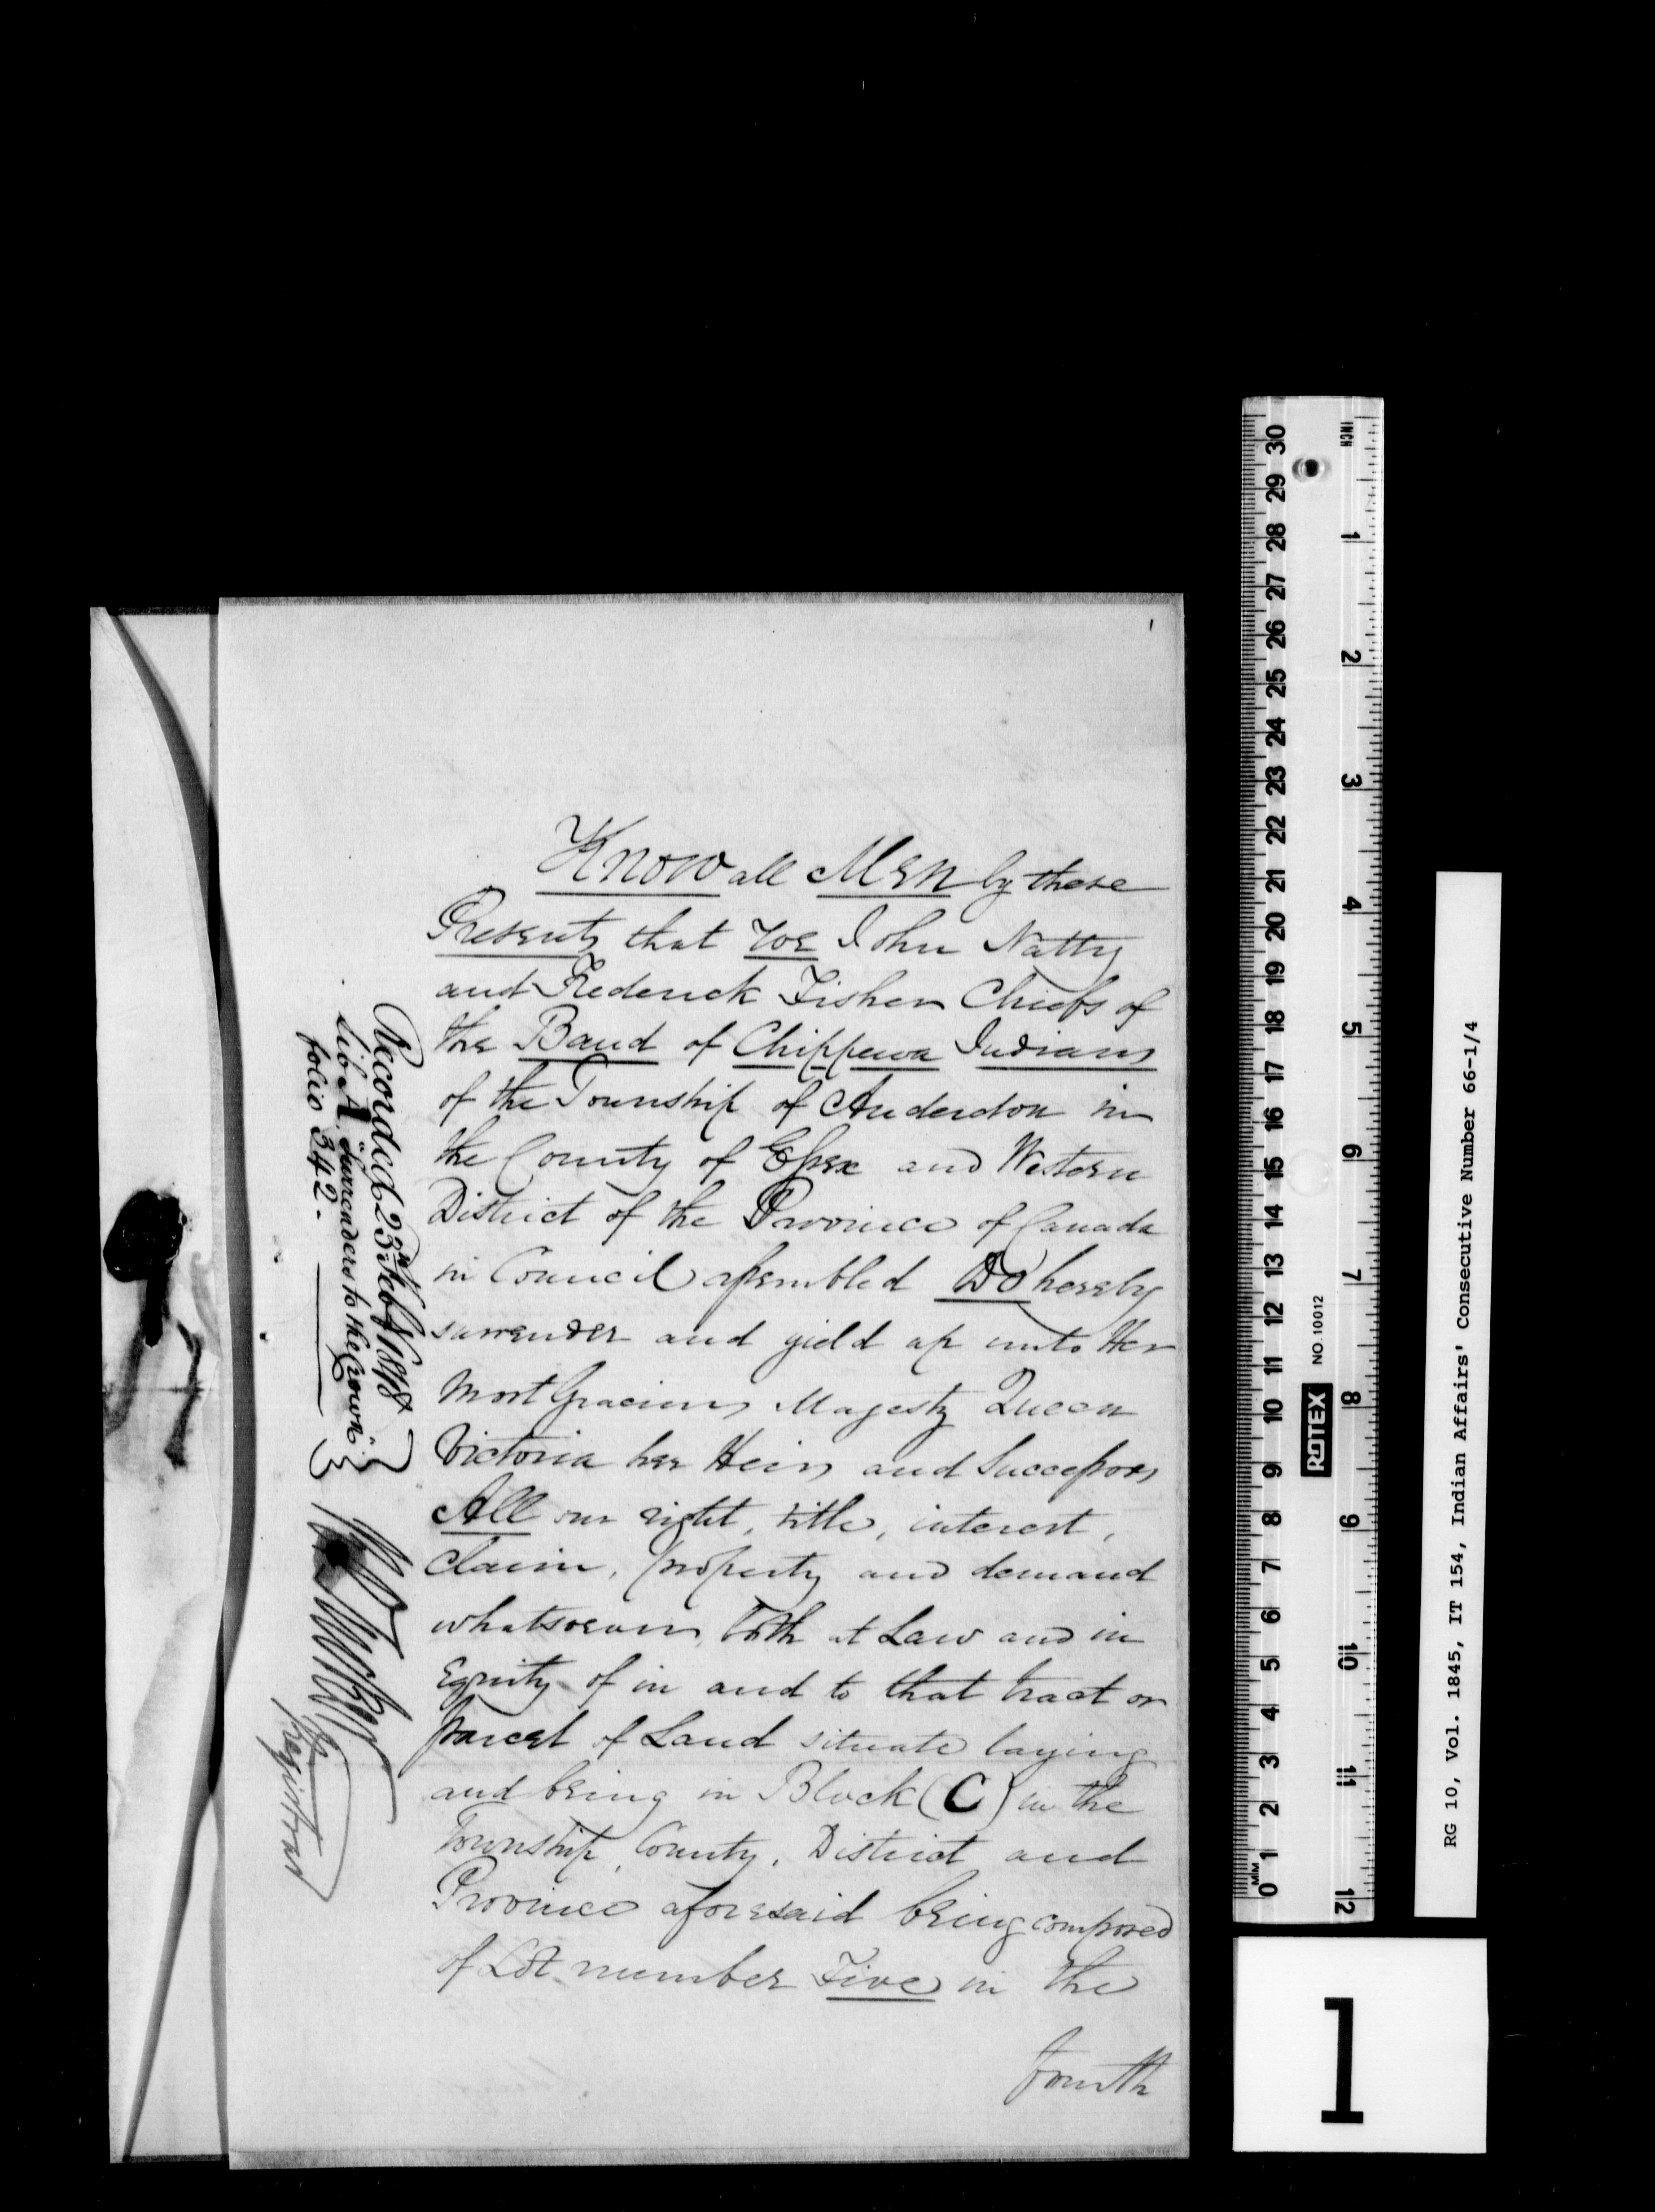 Know all Men by these
Presents that We John Natty
and Frederick Fisher Chiefs of
the Band of Chippewa Indians
of the Township of Anderdon in
the County of Essex and Western
District of the Province of Canada
in Council assembled Do hereby
surrender and yield up unto Her
Most Gracious Majesty Queen
Victoria her Heirs and Successors
All our right, title, interest,
claim, property and demand
whatsoever, both at Law and in
Equity of in and to that tract or
parcel of Land situate laying
and being in Block (C) in the
Township, County, District and
Province aforesaid being composed
of Lot number Five in the
fourth
Recorded 23rd Feby 1848
Lib A "Surrenders to the Crown"
folio 342.
Registrar
INCH 1 2 3 4 5 6 7 8 9 10 11 12
30 29 28 27 26 25 24 23 22 21 20 19 18 17 16 15 14 13 12 11 10 9 8 7 6 5 4 3 2 1 0
MM
ROTEX NO. 10012
RG 10, Vol. 1845, IT 154, Indian Affairs' Consecutive Number 66-1/4
1